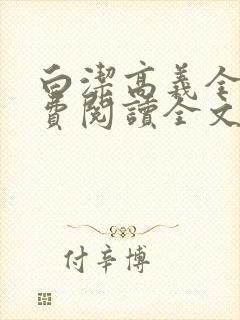 白潔高義全
費閱讀全文
付辛博